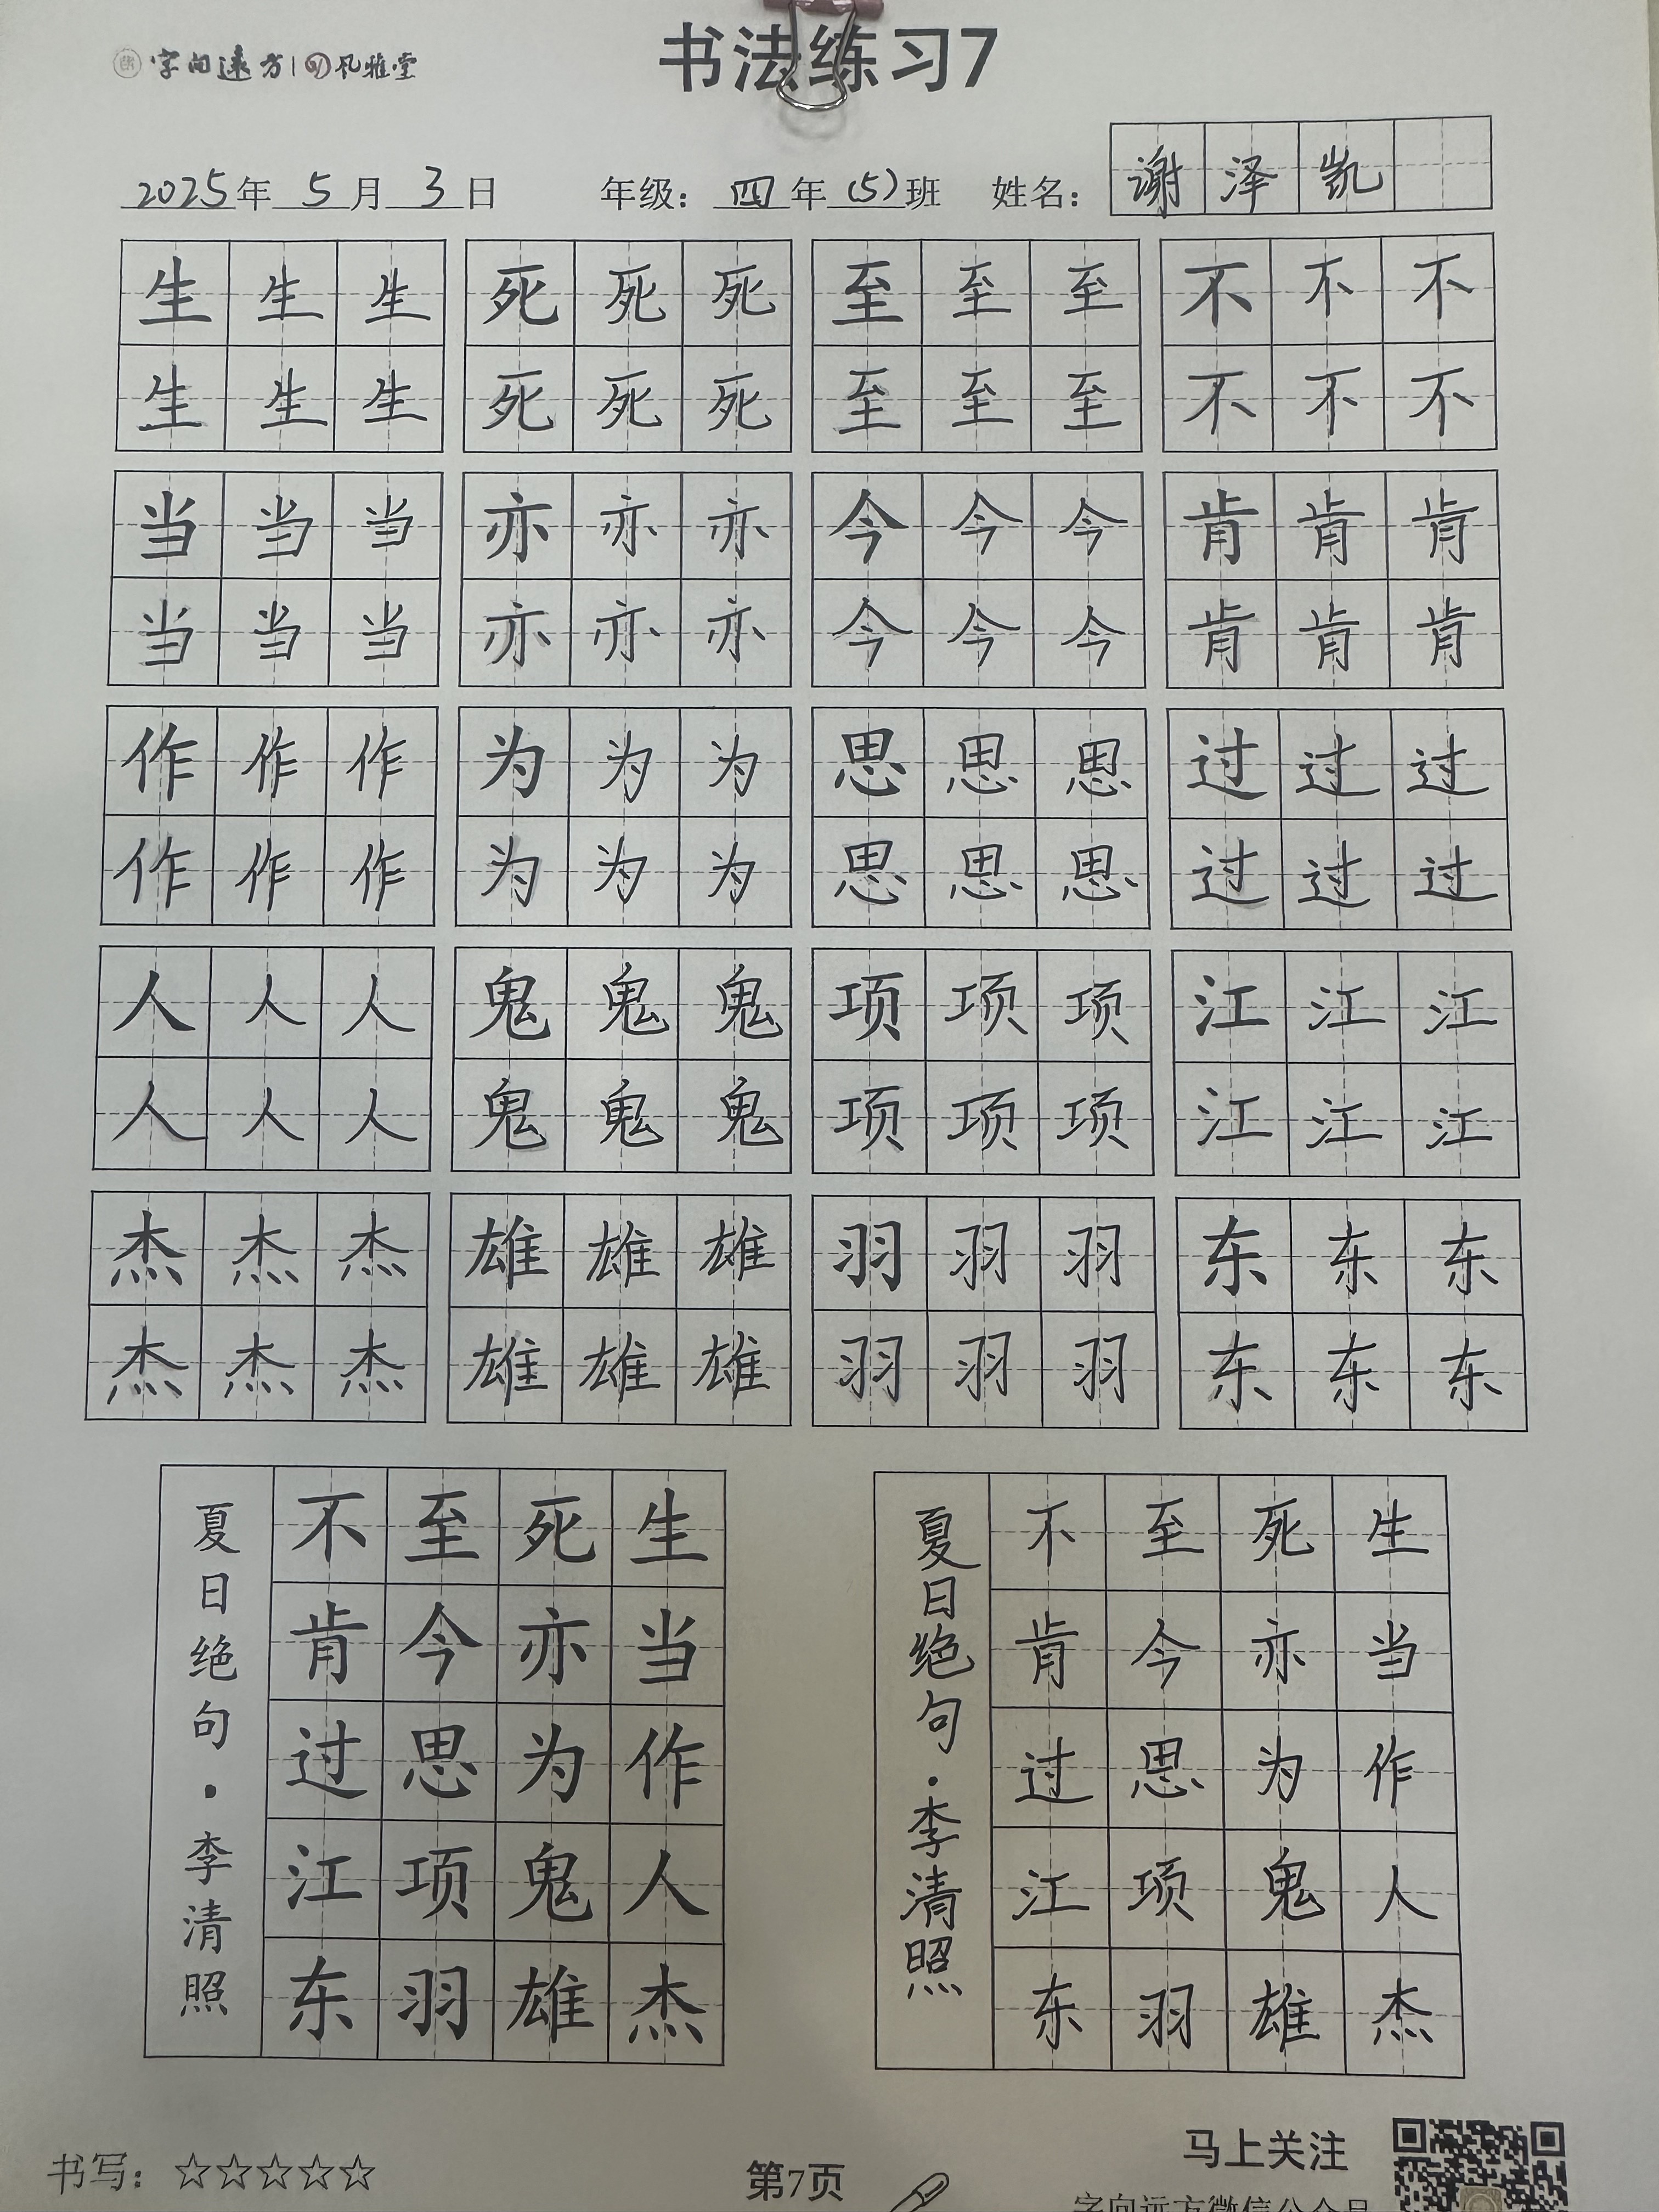 字向远方|风雅堂
书法练习7
2025年5月3日 年级：四年(5)班 姓名：谢泽凯
生生生 死死死 至至至 不不不
生生生 死死死 至至至 不不不
当当当 亦亦亦 今今今 肯肯肯
当当当 亦亦亦 今今今 肯肯肯
作作作 为为为 思思思 过过过
作作作 为为为 思思思 过过过
人人人 鬼鬼鬼 项项项 江江江
人人人 鬼鬼鬼 项项项 江江江
杰杰杰 雄雄雄 羽羽羽 东东东
杰杰杰 雄雄雄 羽羽羽 东东东
生当作人杰
死亦为鬼雄
至今思项羽
不肯过江东
夏日绝句·李清照
生当作人杰
死亦为鬼雄
至今思项羽
不肯过江东
夏日绝句·李清照
书写：☆☆☆☆☆
第7页
马上关注
字向远方微信公众号